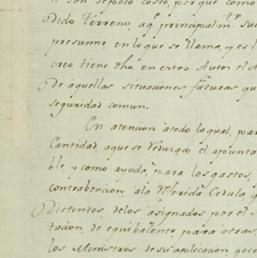 son de poco costo, porque como
Dido Terreno, aq.l principalm.te su
presume, en lo que se llama, y es
creo tiene dha en estos Autos el
de aquellas situaciones futuras qu
seguridad comun.
En atencion àtodo lo qual, pa
Cantidad aque se reduzga el apunta
ble, y como ayuda, para los gastos,
contrabencion, ala referida Cedula q
Distintos, delos asignados por el
tacion, de equibalente, para otras,
los Ministros de su aplicacion goc